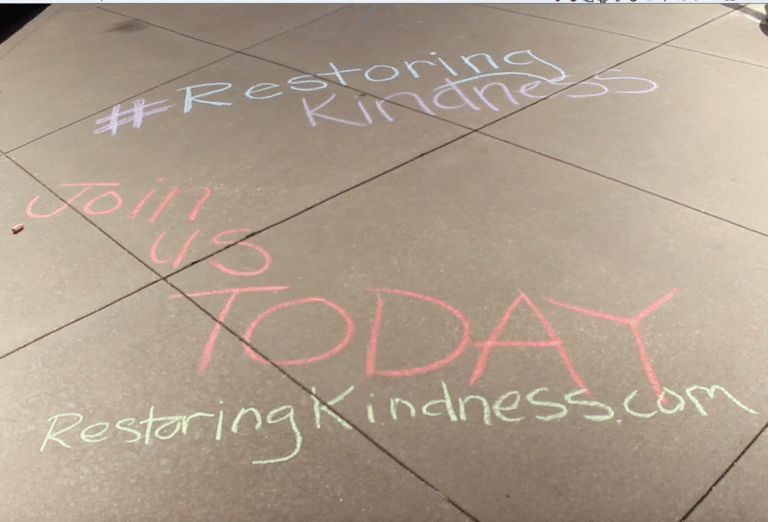 #Restoring
Kindness
Join
us
TODAY
RestoringKindness.com